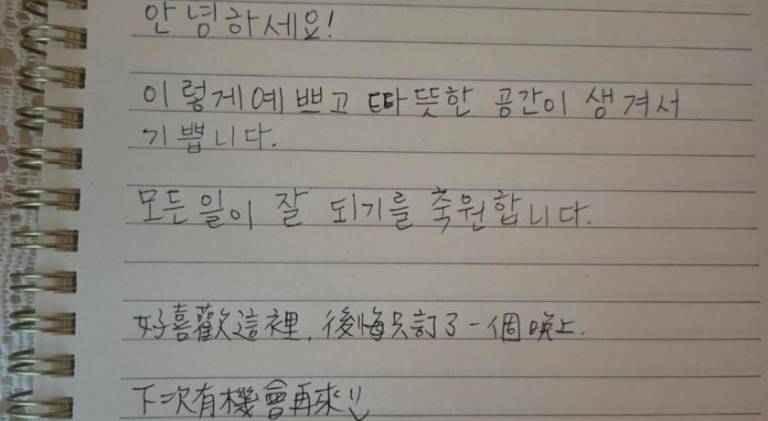 안녕하세요!
이렇게 예쁘고 따뜻한 공간이 생겨서
기쁩니다.
모든일이 잘 되기를 축원합니다.
好喜歡這裡, 後悔只訂了一個晚上.
下次有機會再來!!